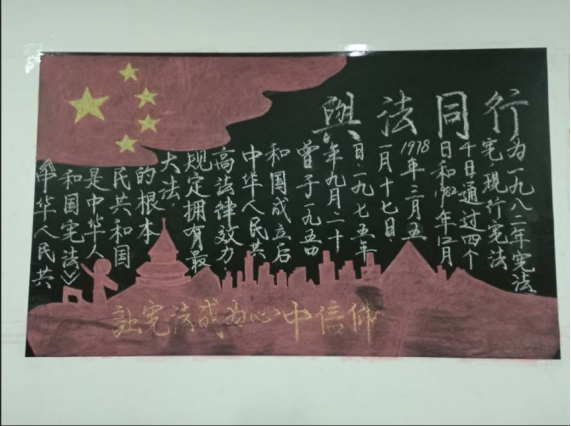 與法同行
《中华人民共
和国宪法》
是中华人
民共和国
的根本
大法
规定拥有最
高法律效力
中华人民共
和国成立后
曾于一九五四
年九月二十
日、一九七五年
一月十七日、
1978年三月五
日和1982年12月
4日通过四个
宪,现行宪法
为一九八二年宪法。
让宪法成为心中信仰